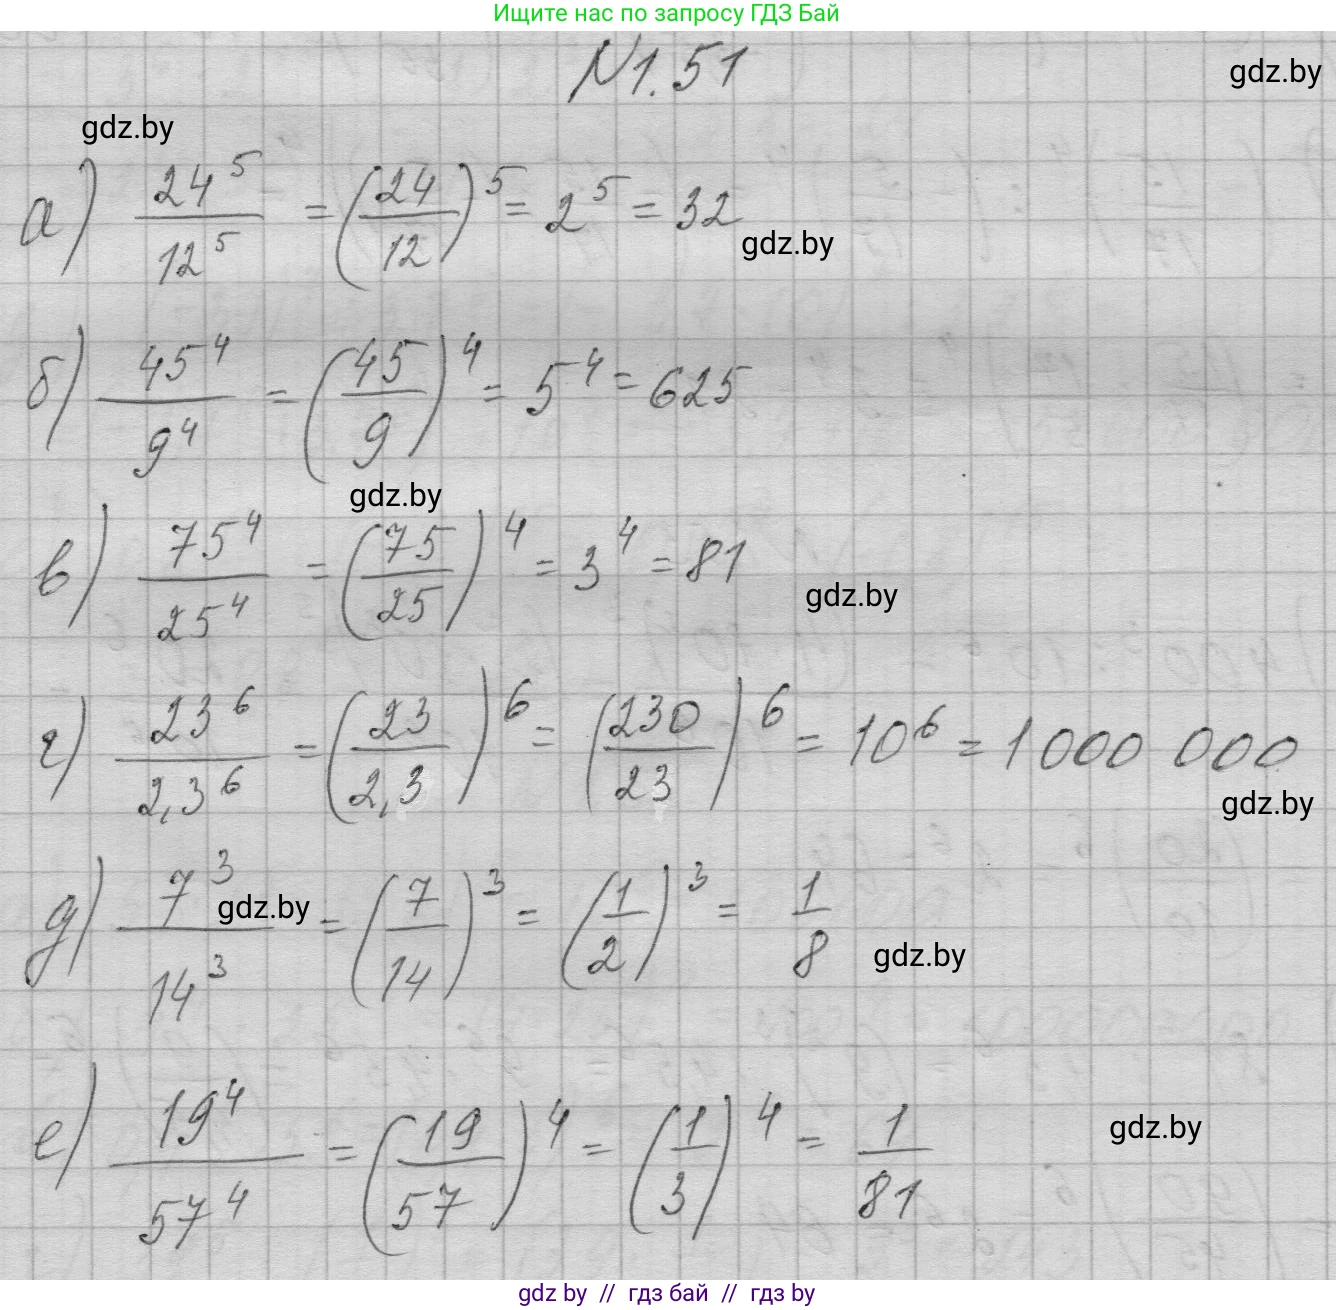 Ищите нас по запросу ГДЗ Бай
N1.51
gdz.by
gdz.by
а) 24^5/12^5 = (24/12)^5 = 2^5 = 32
gdz.by
б) 45^4/9^4 = (45/9)^4 = 5^4 = 625
gdz.by
в) 75^4/25^4 = (75/25)^4 = 3^4 = 81
gdz.by
г) 23^6/2,3^6 = (23/2,3)^6 = (230/23)^6 = 10^6 = 1 000 000
gdz.by
д) 7^3/14^3 = (7/14)^3 = (1/2)^3 = 1/8
gdz.by
gdz.by
е) 19^4/57^4 = (19/57)^4 = (1/3)^4 = 1/81
gdz.by
gdz by // гдз бай // гдз by